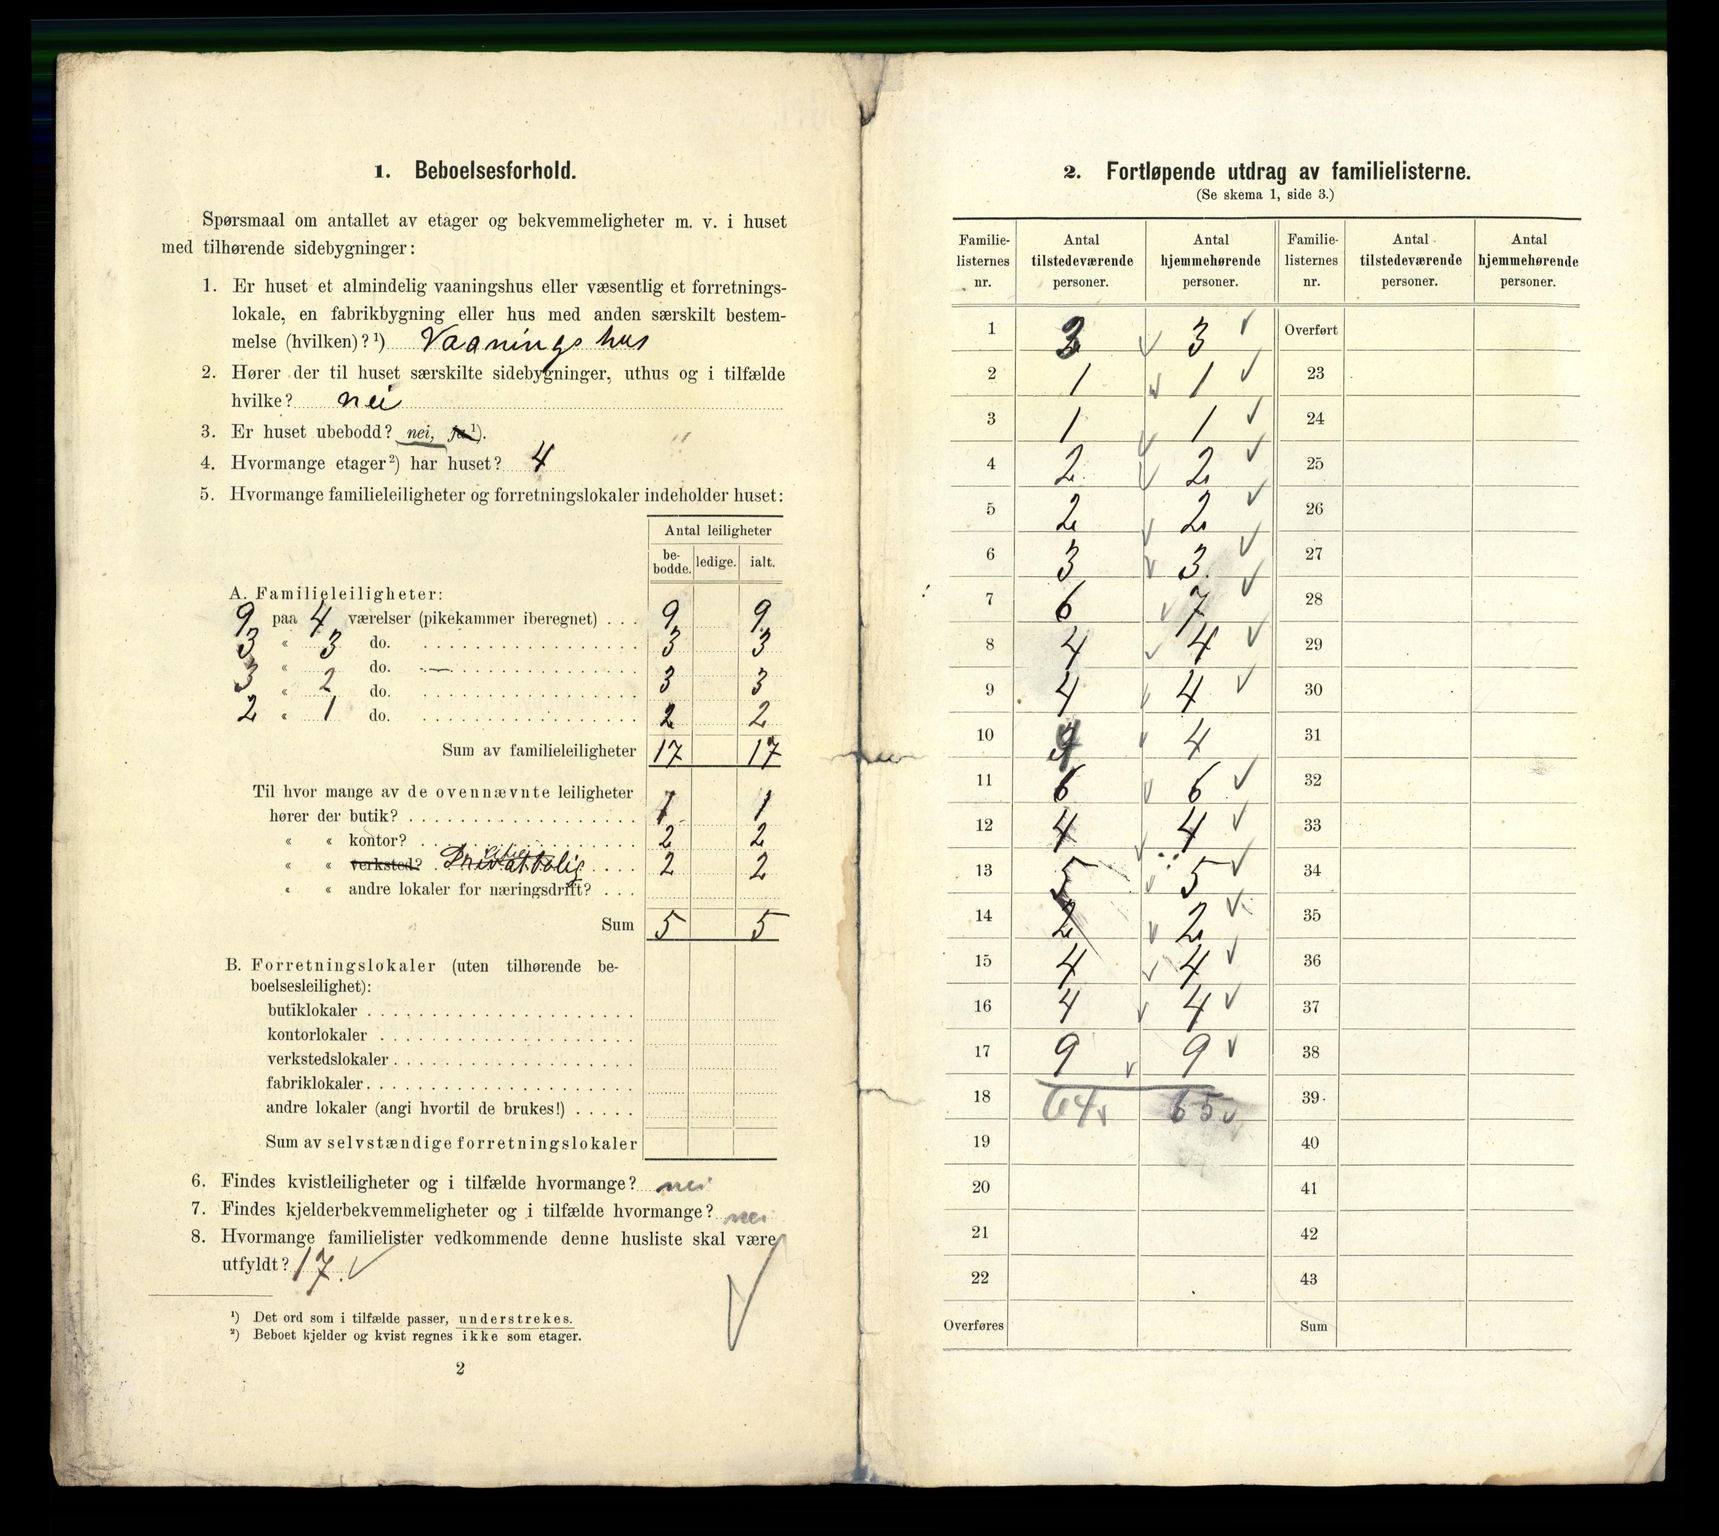 1. Beboelsesforhold.
Spørsmaal om antallet av etager og bekvemmeligheter m. v. i huset
med tilhørende sidebygninger:
1. Er huset et almindelig vaaningshus eller væsentlig et forretnings-
lokale, en fabrikbygning eller hus med anden særskilt bestem-
melse (hvilken)?¹) Vaaningshus
2. Hører der til huset særskilte sidebygninger, uthus og i tilfælde
hvilke? nei
3. Er huset ubebodd? nei, ja¹).
4. Hvormange etager²) har huset? 4
5. Hvormange familieleiligheter og forretningslokaler indeholder huset:
Antal leiligheter
be-bodde. ledige. ialt.
A. Familieleiligheter:
9 paa 4 værelser (pikekammer iberegnet) . . . 9 9
3 « 3 do. 3 3
« do. —
3 « 2 do. 3 3
2 « 1 do. 2 2
Sum av familieleiligheter 17 17
Til hvor mange av de ovennævnte leiligheter
hører der butik? 1 1
« « kontor? 2 2
« « verksted? 2 2
« « andre lokaler for næringsdrift? . . .
Sum 5 5
B. Forretningslokaler (uten tilhørende be-
boelsesleilighet):
butiklokaler
kontorlokaler
verkstedslokaler
fabriklokaler
andre lokaler (angi hvortil de brukes!)
Sum av selvstændige forretningslokaler
6. Findes kvistleiligheter og i tilfælde hvormange? nei
7. Findes kjelderbekvemmeligheter og i tilfælde hvormange? nei
8. Hvormange familielister vedkommende denne husliste skal være
utfyldt? 17.
¹) Det ord som i tilfælde passer, understrekes.
²) Beboet kjelder og kvist regnes ikke som etager.
2
2. Fortløpende utdrag av familielisterne.
(Se skema 1, side 3.)
Familie-listernes nr. Antal tilstedeværende personer. Antal hjemmehørende personer. Familie-listernes nr. Antal tilstedeværende personer. Antal hjemmehørende personer.
1 3 3 Overført
2 1 1 23
3 1 1 24
4 2 2 25
5 2 2 26
6 3 3 27
7 6 7 28
8 4 4 29
9 4 4 30
10 4 4 31
11 6 6 32
12 4 4 33
13 5 5 34
14 2 2 35
15 4 4 36
16 4 4 37
17 9 9 38
18 64 65 39
19 40
20 41
21 42
22 43
Overføres Sum